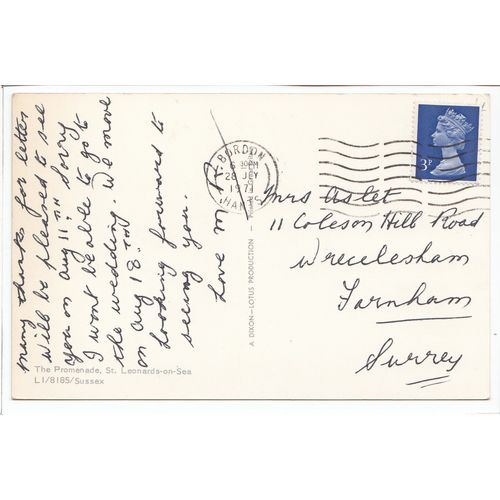 many thanks for letter
will be pleased to see
you on Aug 11TH sorry
I wont be able to go to
the wedding. We move
on Aug 18TH
Looking forward to
seeing you.
Love M
The Promenade, St. Leonards-on-Sea
L1/8185/Sussex
A DIXON-LOTUS PRODUCTION
BORDON
6 30PM
28 JLY
197
HANTS
3P
Mrs Aslet
11 Coleson Hill Road
Wrecclesham
Farnham
Surrey